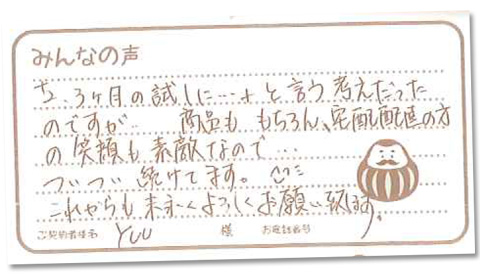 みんなの声
2.3ヶ月の試しに…と言う考えだった
のですが… 商品も もちろん、宅配配達の方
の笑顔も素敵なので…
ついつい続けてます。
これからも末永くよろしくお願い致します。
ご契約者様名 YUU 様 お電話番号